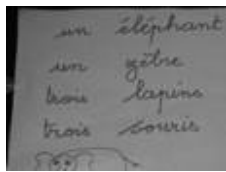 un éléphant
un zèbre
trois lapins
trois souris